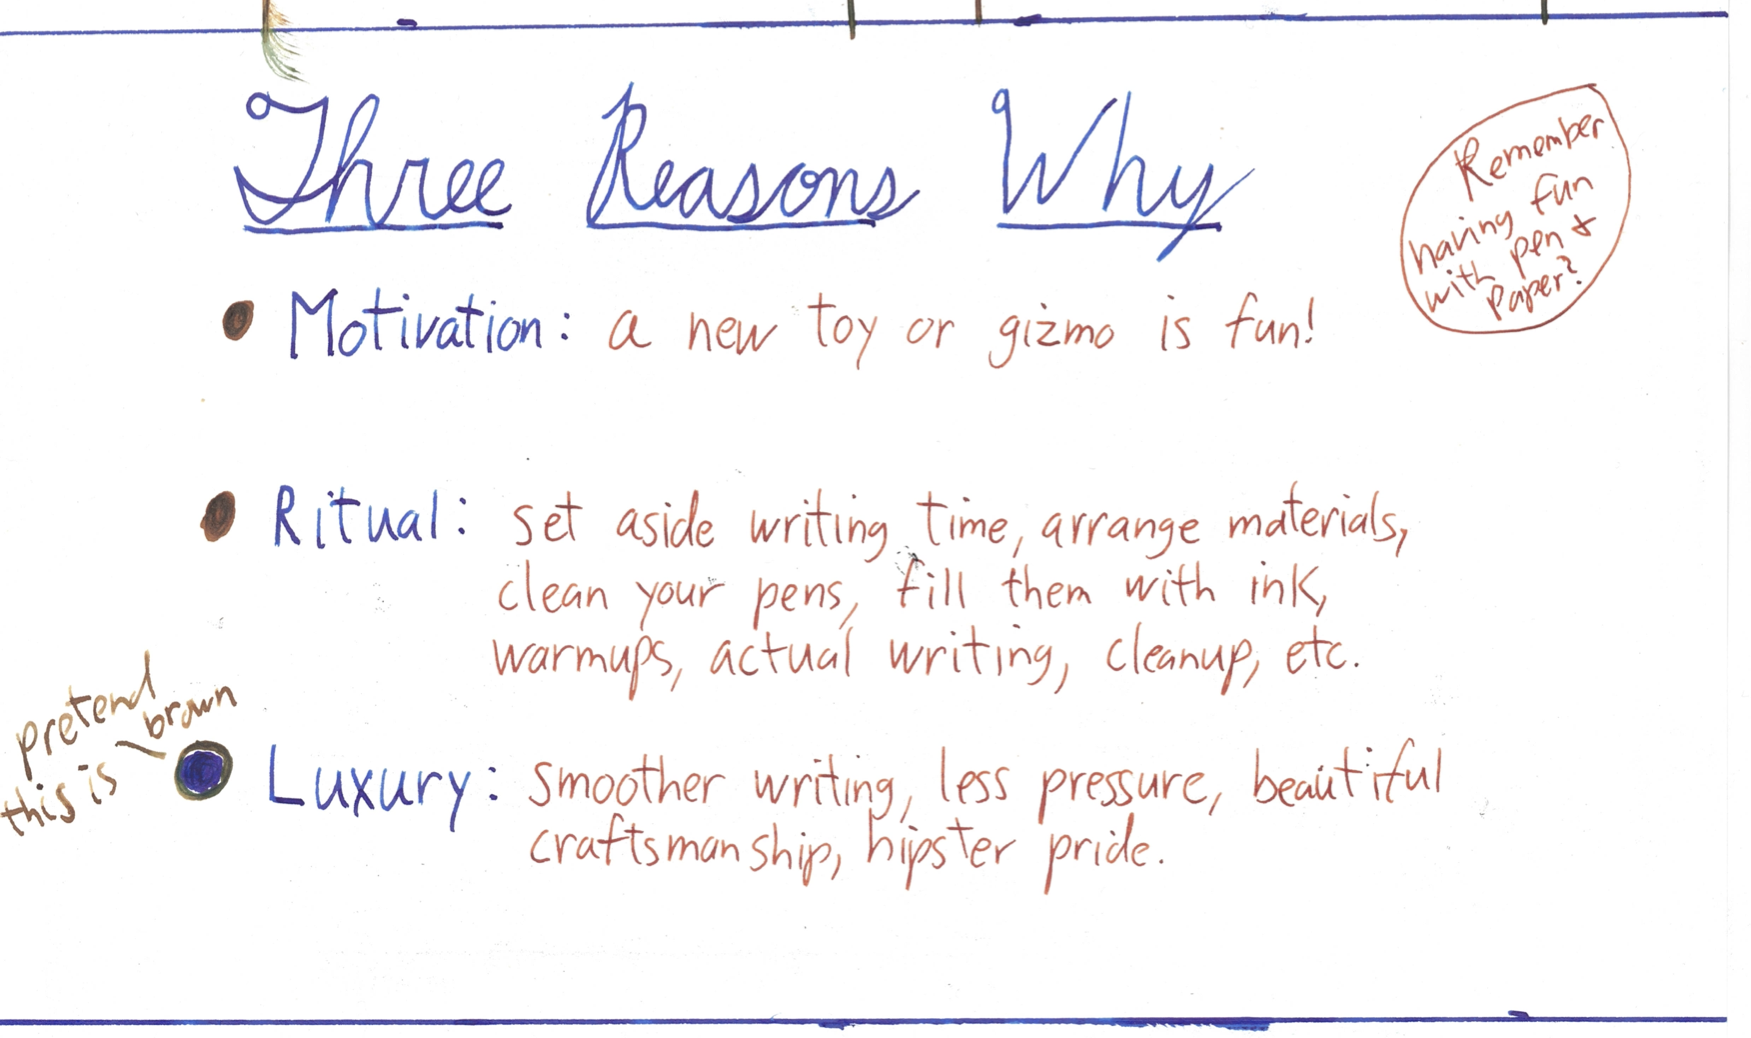 Three Reasons Why
Remember
having fun
with pen &
paper?
• Motivation: a new toy or gizmo is fun!
• Ritual: set aside writing time, arrange materials,
clean your pens, fill them with ink,
warmups, actual writing, cleanup, etc.
pretend
this is
brown
• Luxury: smoother writing, less pressure, beautiful
craftsmanship, hipster pride.